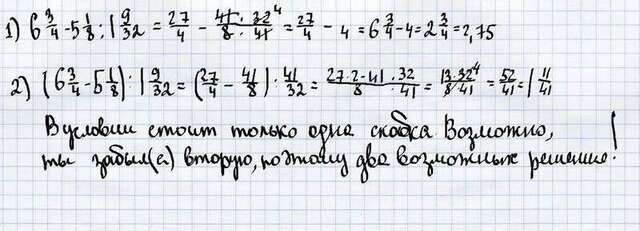 1) 6 3/4 - 5 1/8 : 1 9/32 = 27/4 - 41/8 · 32⁴/41 = 27/4 - 4 = 6 3/4 - 4 = 2 3/4 = 2,75
2) (6 3/4 - 5 1/8) : 1 9/32 = (27/4 - 41/8) : 41/32 = 27·2-41/8 · 32/41 = 13·32⁴/8·41 = 52/41 = 1 11/41
В условии стоит только одна скобка Возможно,
ты забыл(а) вторую, поэтому два возможных решение!